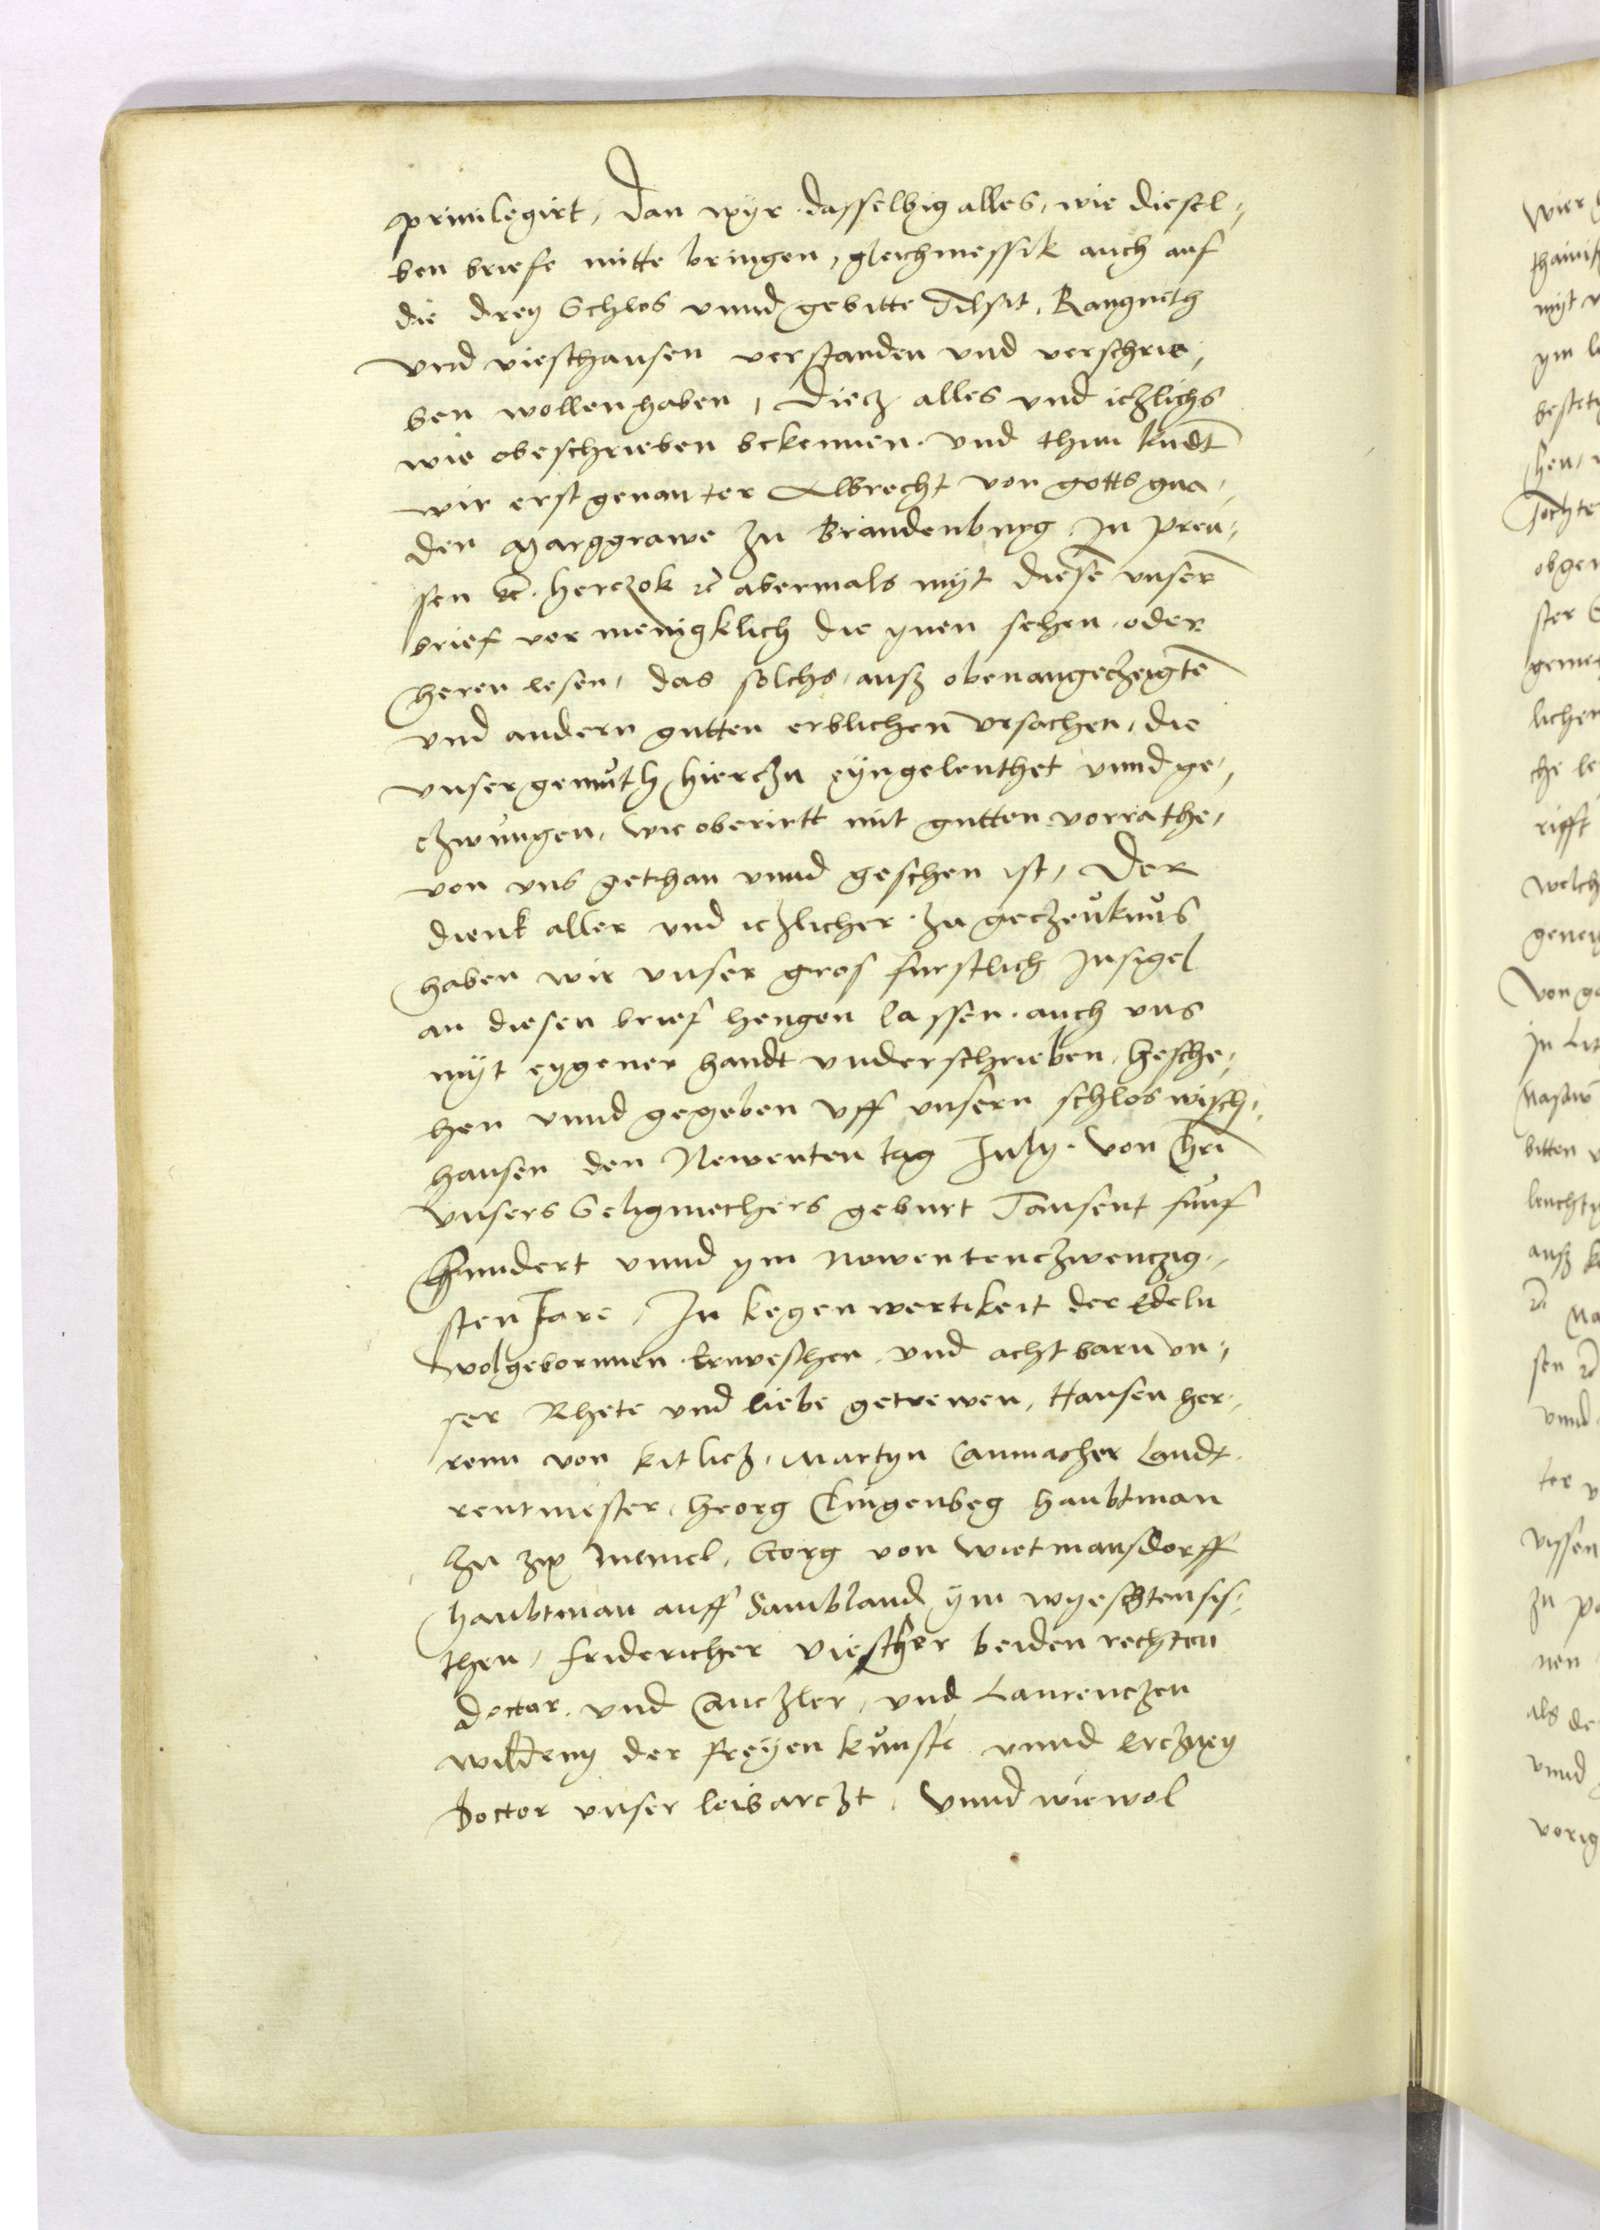 priuilegirt, dan wyr dasselbig alles, wie diesel,
ben briefe mitte bringen, gleichmessik auch auf
die drey Schlos vnnd gebitte Tilsit, Rangneth
vnd vieschhausen verstanden vnd verschrie,
ben wollen haben, Diecz alles vnd iczlichs
wie obeschrieben bekennen vnd thun kudt
wir erst genanter Albrecht von gotts gna,
den Marggrawe zu Brandenburg in preu,
sen ꝛc. herczok ꝛc abermals myt diesē vnserē
brief vor menigklich die ynen sehen oder
heren lesen, das solchs, auß obenangeczeigtē
vnd andern gutten erblichen vrsachen, die
vnser gemůth hierczu eyngelenthet vnnd ge,
czwungen, wie oberirtt mit gutten vorrathe,
von vns gethan vnnd geschen ist, Der
dienk aller vnd iczlicher zu geczeůknůs
haben wir vnser gros furstlich Insigel
an diesen brief hengen lassen, auch vns
myt eygener handt vnderschrieben, Gesche,
hen vnnd gegeben vff vnsern schlos wisch,
hausen den Newenten tag July. von Chri
vnsers Seligmechers geburt Tausent funf
Hundert vnnd ym nowentenczwenczig,
sten Jare, In kegenwertikeit der Edeln
wolgebornnen Ernveschen vnd achtbarn vn,
ser Rhete vnd liebe getrewen, Hansen her,
renn von kitlicz, Martyn Canmacher Landt
rentmester, Georg Clingenbeg haubtman
zu Memel, Gorg von wietmansdorff
haubtman auff Sambland ym
then, fridericher viescher beiden rechten
doctor vnd Canczler, vnd Laurenczen
wildeny der freyen kůnste vnnd erczney
Doctor vnser leibarczt, Vnnd wiewol